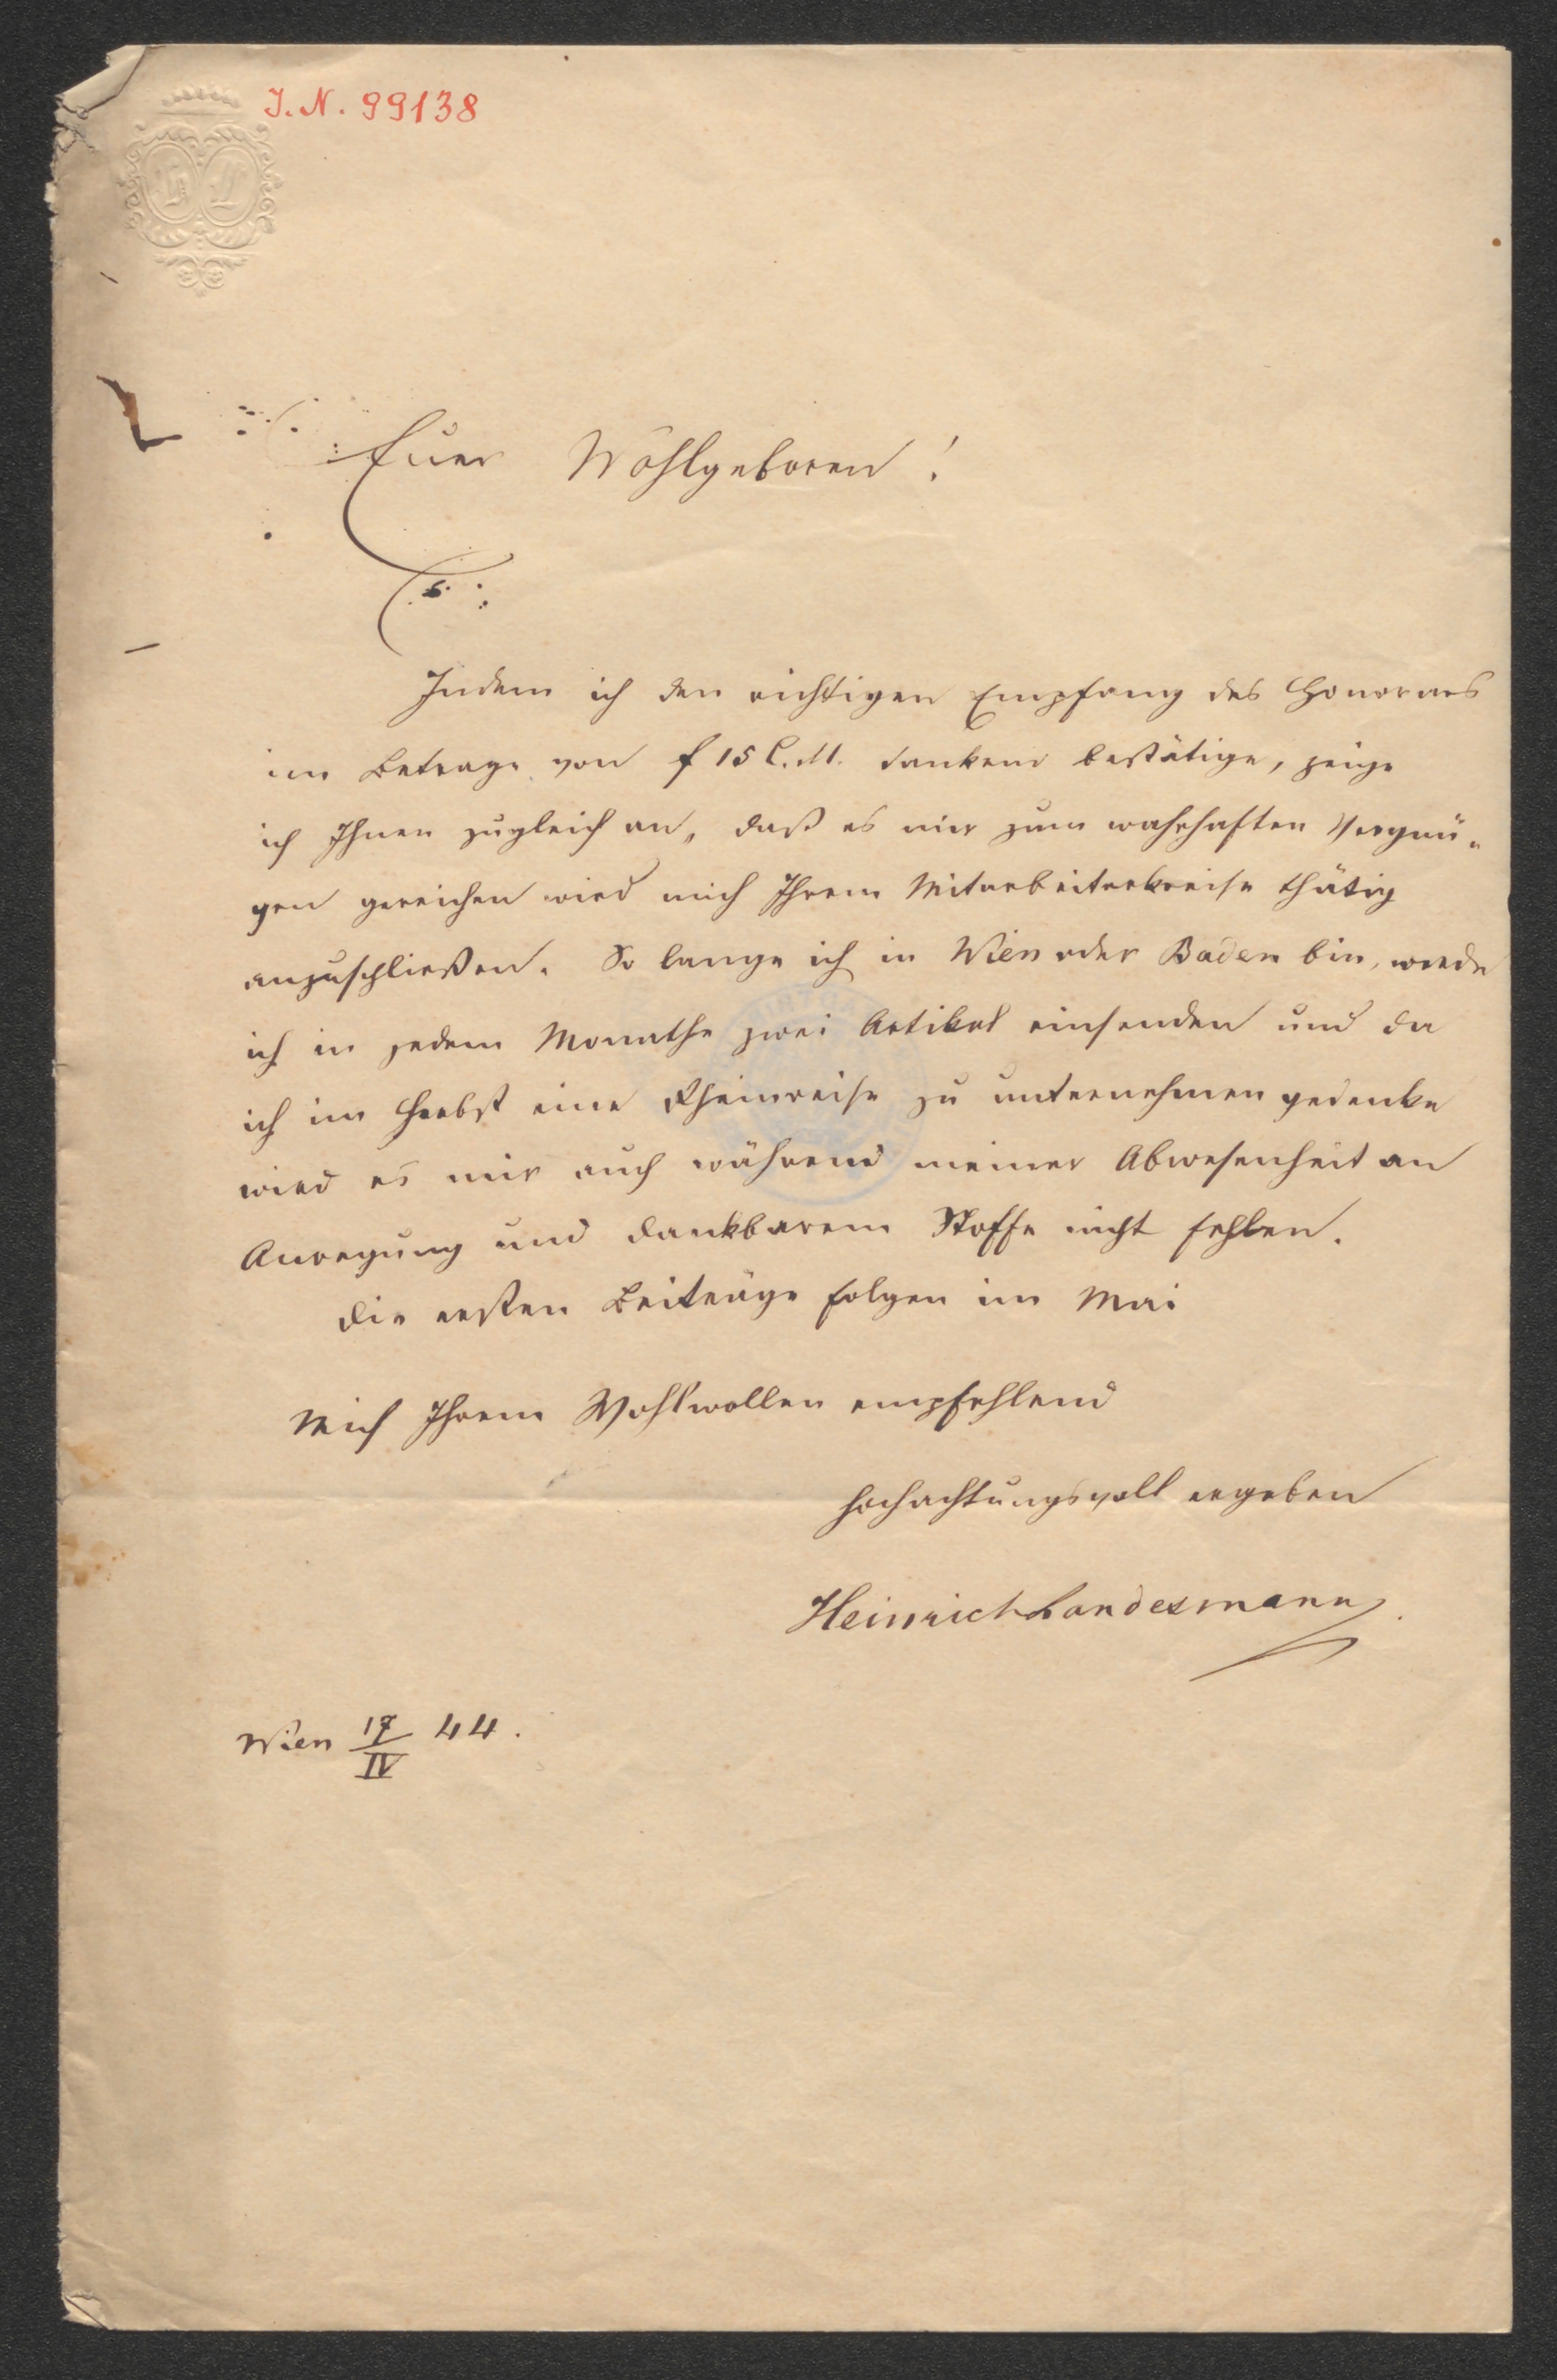 J. N. 99138
Euer Wohlgeboren!
Indem ich den richtigen Empfang des Honorars
im Betrage von f 15 C. M. dankend bestätige, zeige
ich Ihnen zugleich an, daß es mir zum wahrhaften Vergnü-
gen gereichen wird mich Ihrem Mitarbeiterkreise thätig
anzuschließen. So lange ich in Wien oder Baden bin, werde
ich in jedem Monathe zwei Artikel einsenden und da
ich im Herbst eine Rheinreise zu unternehmen gedenke
wird es mir auch während meiner Abwesenheit an
Anregung und dankbarem Stoffe nicht fehlen.
Die ersten Beiträge folgen im Mai
Mich Ihrem Wohlwollen empfehlend
hochachtungsvoll ergeben
Heinrich Landesmann
Wien 17/IV 44.